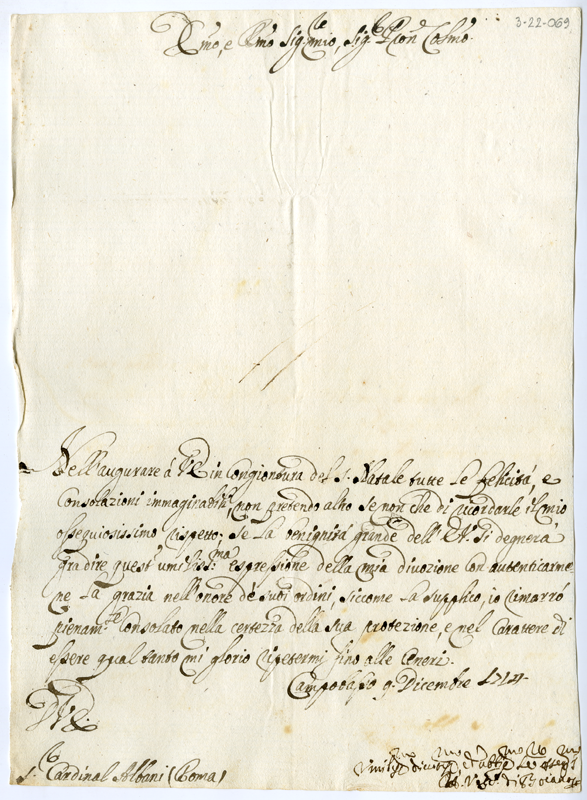 3-22-069
E.mo, e R.mo Sig.re mio, Sig.r e P.ron Col.mo
Nell'augurare á V.E. in congiontura del S. Natale tutte le felicitá, e
consolazioni immaginabili, non pretendo altro se non che di ricordarle il mio
ossequiosissimo rispetto; se la benignitá grande dell'E.V. si degnerá
gradire quest'umiliss.ma espressione della mia divozione con autenticarme
ne la grazia nell'onore de suoi ordini, siccome la supplico, io rimarró
pienam.te consolato nella certezza della sua protezione, e nel carattere di
essere qual tanto mi glorio ripetermi fino alle ceneri.
Campobasso 9. Dicembre 1714.
D.V.E.
S.r Cardinal Albani (Roma)
di Boiano